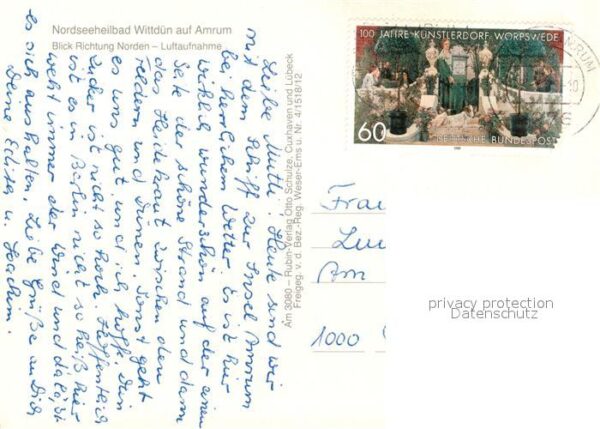 Nordseeheilbad Wittdün auf Amrum
Blick Richtung Norden – Luftaufnahme
100 JAHRE KÜNSTLERDORF WORPSWEDE
60
DEUTSCHE BUNDESPOST
AMRUM
Liebe Mutti, Heute sind wir
mit dem Schiff zur Insel Amrum
bei herrlichem Wetter. Es ist hier
wirklich wunderschön auf der einen
Seite der schöne Strand und dann
das Heidekraut zwischen den
Federn und Dünen. Sonst geht
es uns gut und ich hoffe, Dein
Zucker ist nicht so hoch. Hoffentlich
ist es in Berlin nicht so heiß, hier
weht immer der Wind und da ist
es sich aushalten. Liebe Grüße an Dich
Deine Elisa u. Joachim.
Am 3080 – Rubin-Verlag Otto Schulze, Cuxhaven und Lübeck
Freigeg. v. d. Bez.-Reg. Weser-Ems u. Nr. 4/1518/12
Frau
Am
1000
privacy protection
Datenschutz